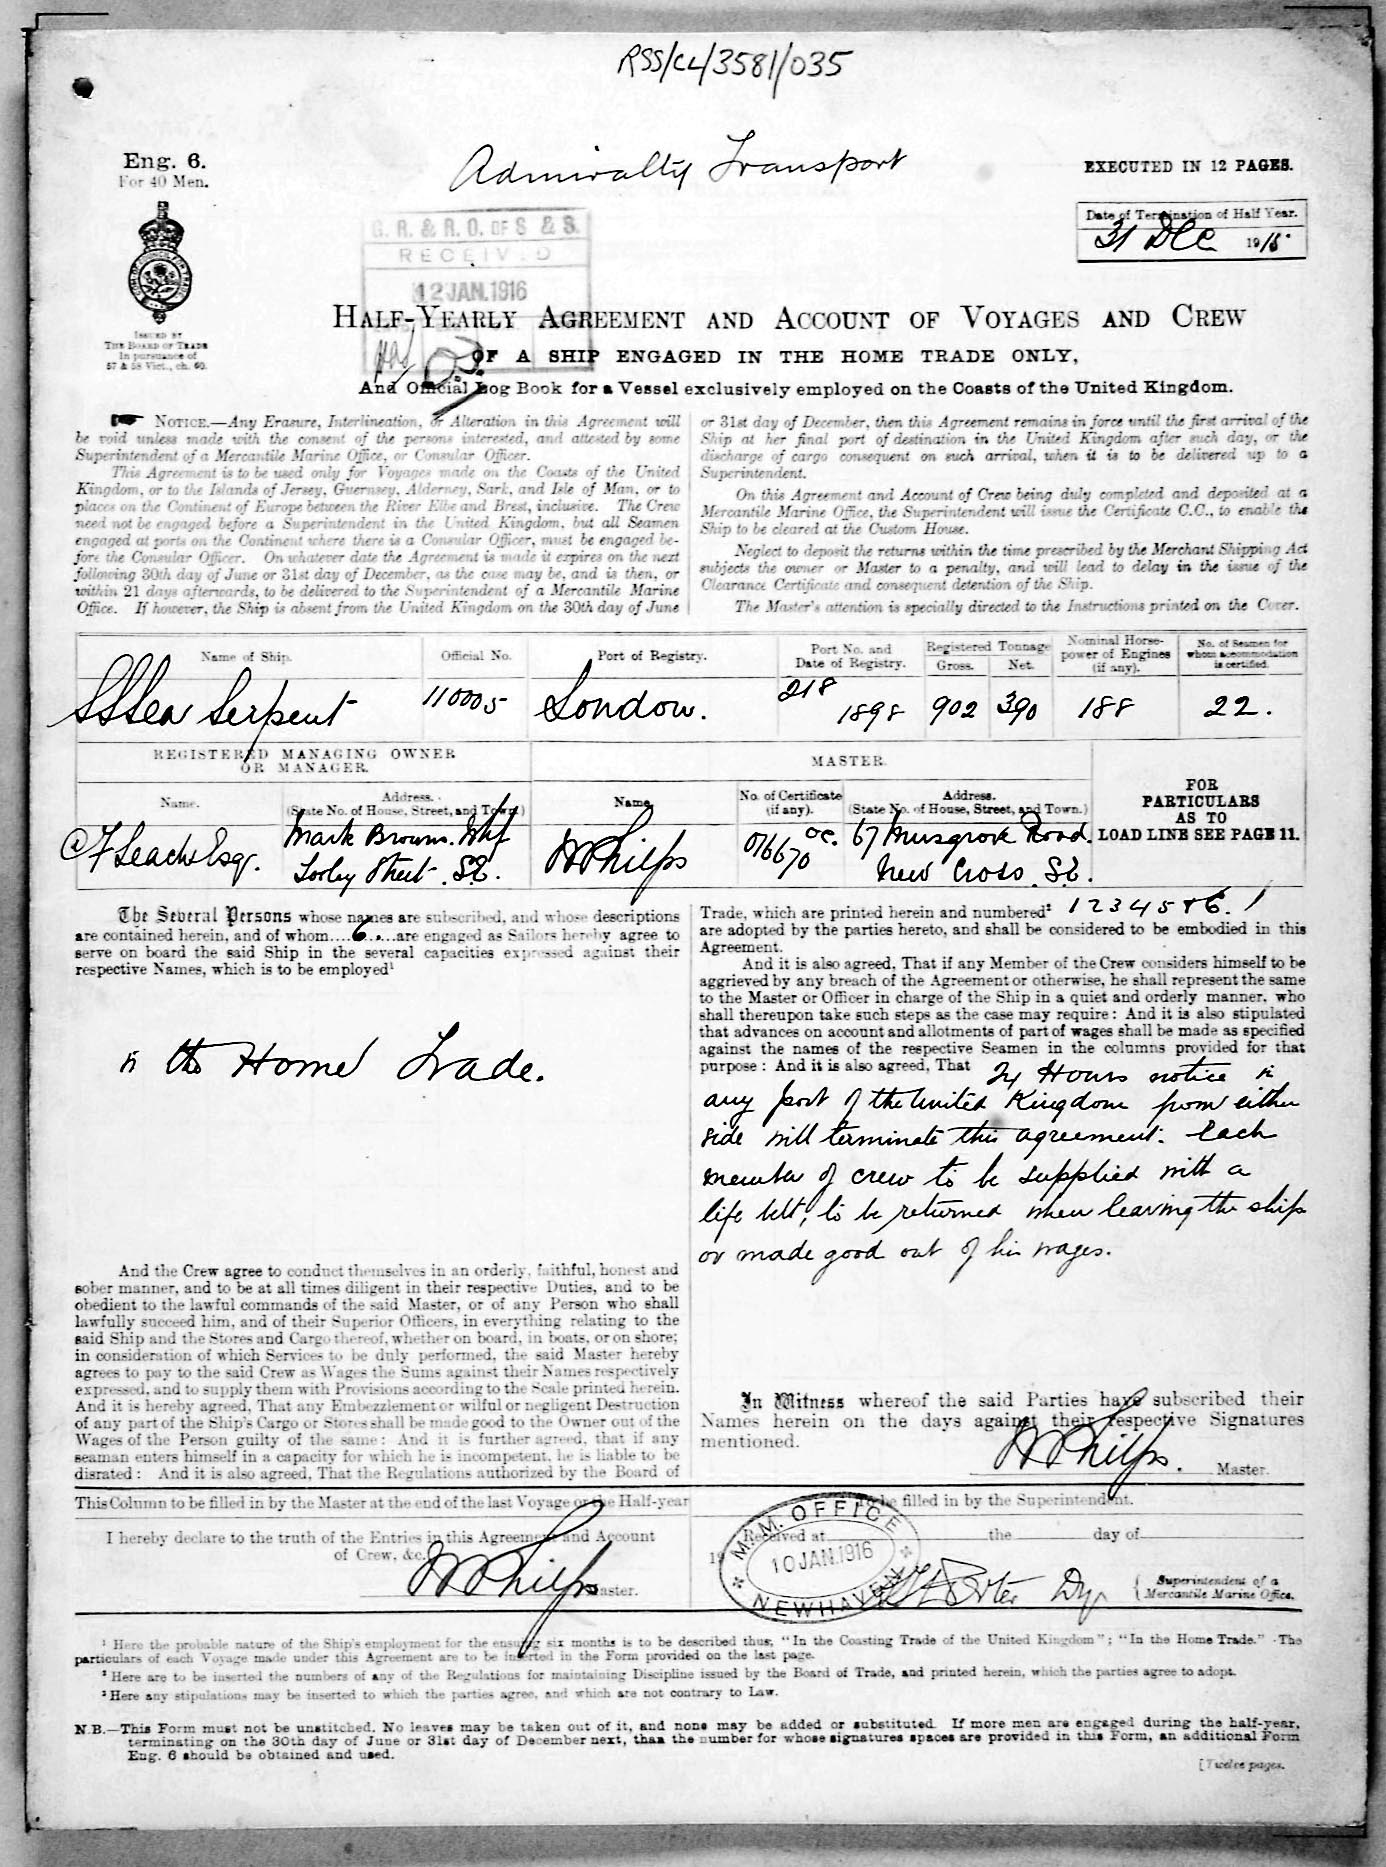 RSS/CL/3581/035
Eng. 6.
For 40 Men.
Admiralty Transport
EXECUTED IN 12 PAGES.
Date of Termination of Half Year.
31 Dec 1915
G. R. & R. O. OF S & S.
RECEIVED
12 JAN. 1916
ISSUED BY
THE BOARD OF TRADE
In pursuance of
57 & 58 Vict., ch. 60.
HALF-YEARLY AGREEMENT AND ACCOUNT OF VOYAGES AND CREW
OF A SHIP ENGAGED IN THE HOME TRADE ONLY,
And Official Log Book for a Vessel exclusively employed on the Coasts of the United Kingdom.
NOTICE.—Any Erasure, Interlineation, or Alteration in this Agreement will
be void unless made with the consent of the persons interested, and attested by some
Superintendent of a Mercantile Marine Office, or Consular Officer.
This Agreement is to be used only for Voyages made on the Coasts of the United
Kingdom, or to the Islands of Jersey, Guernsey, Alderney, Sark, and Isle of Man, or to
places on the Continent of Europe between the River Elbe and Brest, inclusive. The Crew
need not be engaged before a Superintendent in the United Kingdom, but all Seamen
engaged at ports on the Continent where there is a Consular Officer, must be engaged be-
fore the Consular Officer. On whatever date the Agreement is made it expires on the next
following 30th day of June or 31st day of December, as the case may be, and is then, or
within 21 days afterwards, to be delivered to the Superintendent of a Mercantile Marine
Office. If however, the Ship is absent from the United Kingdom on the 30th day of June
or 31st day of December, then this Agreement remains in force until the first arrival of the
Ship at her final port of destination in the United Kingdom after such day, or the
discharge of cargo consequent on such arrival, when it is to be delivered up to a
Superintendent.
On this Agreement and Account of Crew being duly completed and deposited at a
Mercantile Marine Office, the Superintendent will issue the Certificate C.C., to enable the
Ship to be cleared at the Custom House.
Neglect to deposit the returns within the time prescribed by the Merchant Shipping Act
subjects the owner or Master to a penalty, and will lead to delay in the issue of the
Clearance Certificate and consequent detention of the Ship.
The Master's attention is specially directed to the Instructions printed on the Cover.
Name of Ship. Official No. Port of Registry. Port No. and Date of Registry. Registered Tonnage Gross. Net. Nominal Horse-power of Engines (if any). No. of Seamen for whom accommodation is certified.
SS Sea Serpent 110005 London. 218 1898 902 390 188 22.
REGISTERED MANAGING OWNER
OR MANAGER.
MASTER.
Name. Address. (State No. of House, Street, and Town.) Name. No. of Certificate (if any). Address. (State No. of House, Street, and Town.)
FOR
PARTICULARS
AS TO
LOAD LINE SEE PAGE 11.
F Leach Esqr. Mark Browns Whf W Philps 016670 O.C. 67 Musgrove Road.
Tooley Street. S.E. New Cross. S.E.
The Several Persons whose names are subscribed, and whose descriptions
are contained herein, and of whom....6....are engaged as Sailors hereby agree to
serve on board the said Ship in the several capacities expressed against their
respective Names, which is to be employed¹
in the Home Trade.
And the Crew agree to conduct themselves in an orderly, faithful, honest and
sober manner, and to be at all times diligent in their respective Duties, and to be
obedient to the lawful commands of the said Master, or of any Person who shall
lawfully succeed him, and of their Superior Officers, in everything relating to the
said Ship and the Stores and Cargo thereof, whether on board, in boats, or on shore;
in consideration of which Services to be duly performed, the said Master hereby
agrees to pay to the said Crew as Wages the Sums against their Names respectively
expressed, and to supply them with Provisions according to the Scale printed herein.
And it is hereby agreed, That any Embezzlement or wilful or negligent Destruction
of any part of the Ship's Cargo or Stores shall be made good to the Owner out of the
Wages of the Person guilty of the same: And it is further agreed, that if any
seaman enters himself in a capacity for which he is incompetent, he is liable to be
disrated: And it is also agreed, That the Regulations authorized by the Board of
Trade, which are printed herein and numbered² 1 2 3 4 5 & 6.
are adopted by the parties hereto, and shall be considered to be embodied in this
Agreement.
And it is also agreed, That if any Member of the Crew considers himself to be
aggrieved by any breach of the Agreement or otherwise, he shall represent the same
to the Master or Officer in charge of the Ship in a quiet and orderly manner, who
shall thereupon take such steps as the case may require: And it is also stipulated
that advances on account and allotments of part of wages shall be made as specified
against the names of the respective Seamen in the columns provided for that
purpose: And it is also agreed, That 24 Hours notice in
any port of the United Kingdom from either
side will terminate this agreement. Each
member of crew to be supplied with a
life belt, to be returned when leaving the ship
or made good out of his wages.
In Witness whereof the said Parties have subscribed their
Names herein on the days against their respective Signatures
mentioned.
W Philps. Master.
This Column to be filled in by the Master at the end of the last Voyage or the Half-year
I hereby declare to the truth of the Entries in this Agreement and Account
of Crew, &c.
W Philps Master.
To be filled in by the Superintendent.
Received at the day of
19
M.M. OFFICE
10 JAN. 1916
NEWHAVEN
Dy
Superintendent of a
Mercantile Marine Office.
¹ Here the probable nature of the Ship's employment for the ensuing six months is to be described thus, "In the Coasting Trade of the United Kingdom"; "In the Home Trade." The
particulars of each Voyage made under this Agreement are to be inserted in the Form provided on the last page.
² Here are to be inserted the numbers of any of the Regulations for maintaining Discipline issued by the Board of Trade, and printed herein, which the parties agree to adopt.
³ Here any stipulations may be inserted to which the parties agree, and which are not contrary to Law.
N.B.—This Form must not be unstitched. No leaves may be taken out of it, and none may be added or substituted. If more men are engaged during the half-year,
terminating on the 30th day of June or 31st day of December next, than the number for whose signatures spaces are provided in this Form, an additional Form
Eng. 6 should be obtained and used.
[Twelve pages.